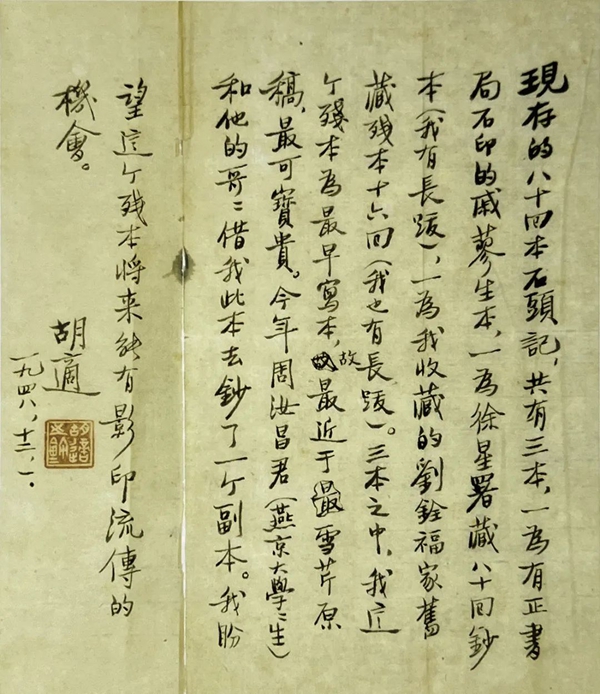 現存的八十回本石頭記，共有三本，一為有正書
局石印的戚蓼生本，一為徐星署藏八十回鈔
本（我有長跋），一為我收藏的劉銓福家舊
藏殘本十六回（我也有長跋）。三本之中，我這
个殘本為最早寫本，故最近于雪芹原
稿，最可寶貴。今年周汝昌君（燕京大學〻生）
和他的哥〻借我此本去鈔了一个副本。我盼
望這个殘本將来能有影印流傳的
機會。
胡適
一九四八，十二，一．